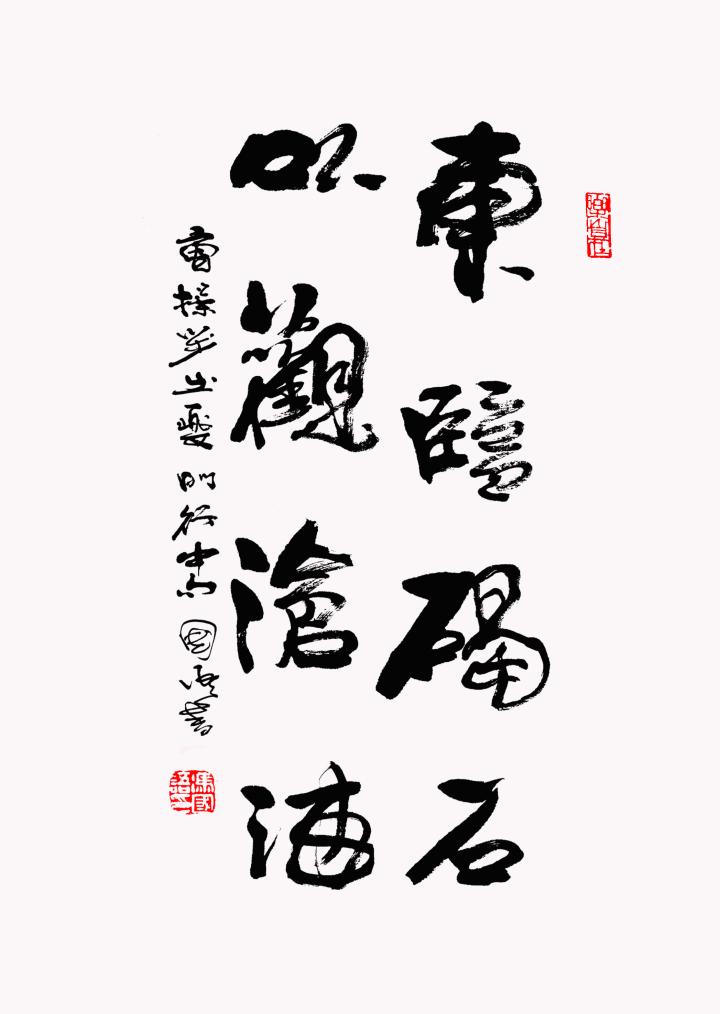 東臨碣石
以觀滄海
曹操步出夏門行中句 國語書